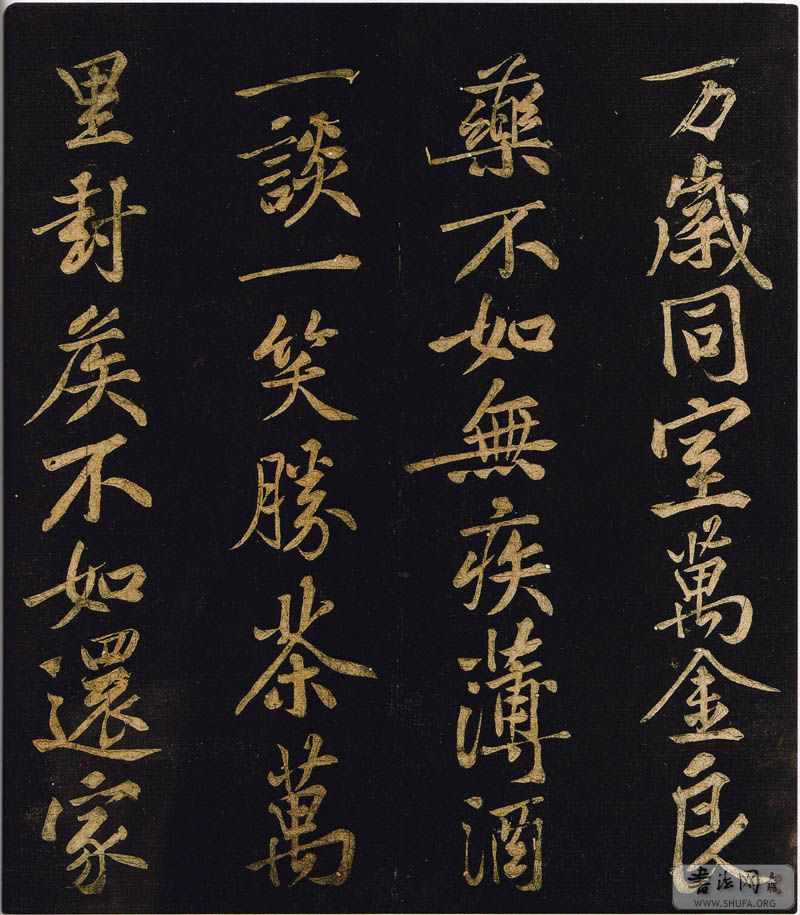 万歲同室萬金良
藥不如無疾薄酒
一談一笑勝茶萬
里封侯不如還家
书法网
WWW.SHUFA.ORG